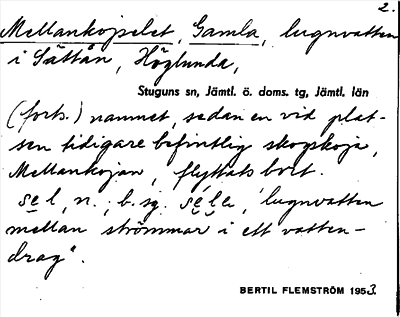 2.
Mellankojselet, Gamla, lugnvatten
i Sättån, Höglunda,
Stuguns sn, Jämtl. ö. doms. tg, Jämtl. län
(forts.) namnet, sedan en vid plat-
sen tidigare befintlig skogskoja,
Mellankojan, flyttats bort.
sel, n., b. sg. séla, "lugnvatten
mellan strömmar i ett vatten-
drag".
BERTIL FLEMSTRÖM 1953.